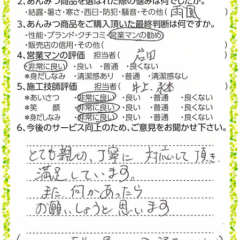 2.あんみつ商品を選ばれた際の悩みは何でしたか。
・結露・暑さ・寒さ・西日・防犯・騒音・その他( 雨風
3.あんみつ商品をご購入頂いた最終判断は何ですか。
・性能・ブランド・クチコミ・営業マンの勧め
・販売店の信用・その他(
4.営業マンの評価 担当者(
・非常に良い ・良い ・普通 ・良くない
*身だしなみ ・清潔感あり ・普通 ・清潔感なし
5.施工技師評価 担当者(
*あいさつ ・非常に良い ・良い ・普通 ・良くない
*笑 顔 ・非常に良い ・良い ・普通 ・良くない
*身だしなみ ・非常に良い ・良い ・普通 ・良くない
6.今後のサービス向上のため、ご意見をお聞かせ下さい。
とても親切、丁寧に 対応して頂き
満足しています。
また 何かあったら
お願いしようと思います